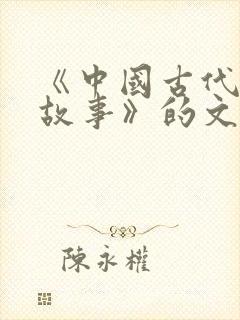 《中國古代
故事》的文
陳永權